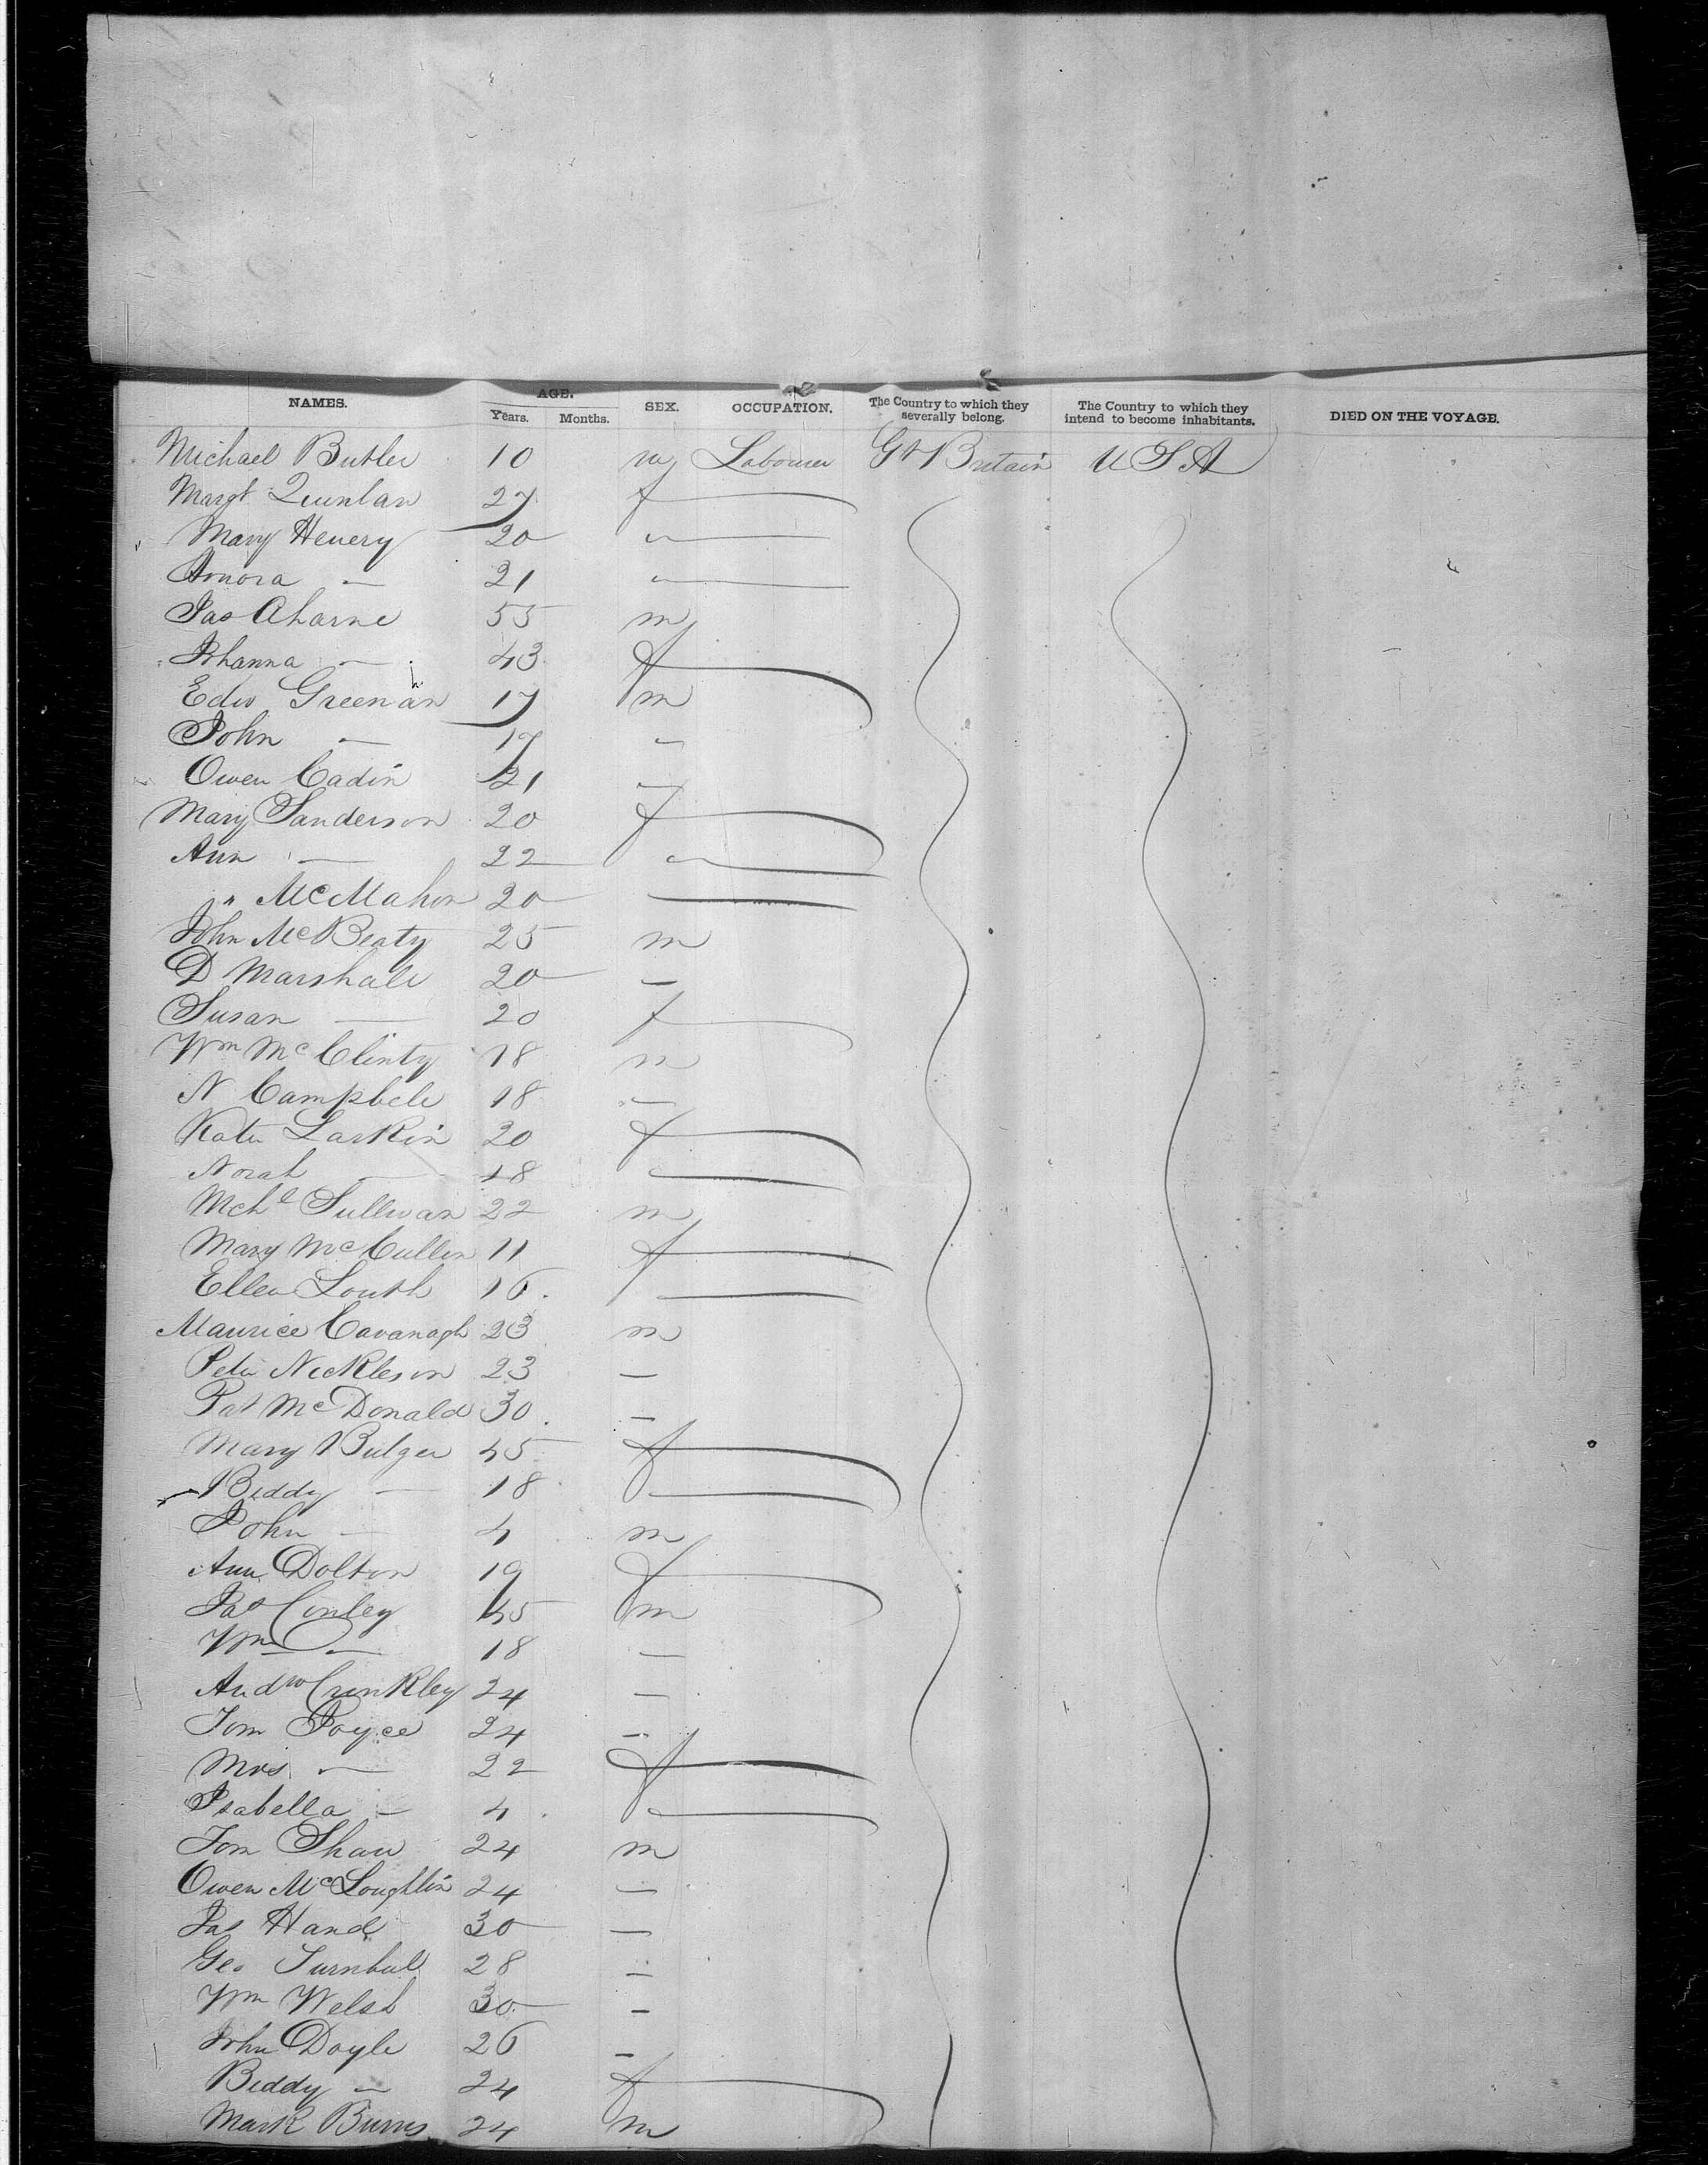 NAMES. AGE. SEX. OCCUPATION. The Country to which they severally belong. The Country to which they intend to become inhabitants. DIED ON THE VOYAGE.
Years. Months.
Michael Butler 10 m Labourer Gt Britain U S A
Margt Quinlan 27 f
Mary Henery 20 "
Honora — 21 "
Jas Aharne 55 m
Johanna — 43 f
Edw Greenan 17 m
John — 17 —
Owen Cadin 21 —
Mary Sanderson 20 f
Ann — 22 "
" McMahon 20 —
John McBeaty 25 m
D Marshall 20 —
Susan — 20 f
Wm McClinty 18 m
N Campbell 18 —
Kate Larkin 20 f
Norah — 18 —
Mchl Sullivan 22 m
Mary McCullen 11 f
Ellen Louth 16 —
Maurice Cavanagh 23 m
Peter Nickleson 23 —
Pat McDonald 30 —
Mary Bulger 45 f
Biddy — 18 —
John — 4 m
Ann Dolton 19 f
Jas Conley 45 m
Wm — 18 —
Andw Crinkley 24 —
Tom Joyce 24 —
Mrs — 22 f
Isabella — 4 —
Tom Shaw 24 m
Owen McLoughlin 24 —
Jas Hand 30 —
Geo Turnbull 28 —
Wm Welsh 30 —
John Doyle 26 —
Biddy — 24 f
Mark Burns 24 m